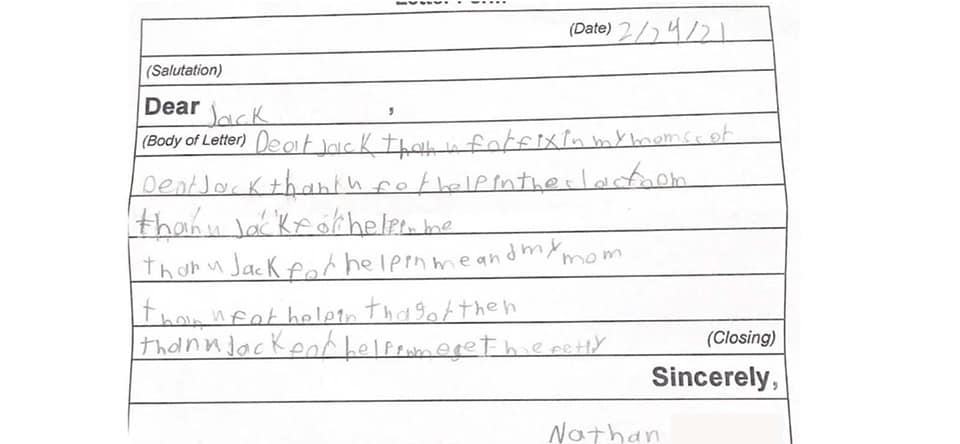 (Date) 2/24/21
(Salutation)
Dear Jack ,
(Body of Letter) Deart Jack than u for fixin my moms
Deat Jack thank u for helpin the
than u Jack for helpin me
than u Jack for helpin me and my mom
than u for helpin
than u Jack for helpin me get
(Closing)
Sincerely,
Nathan